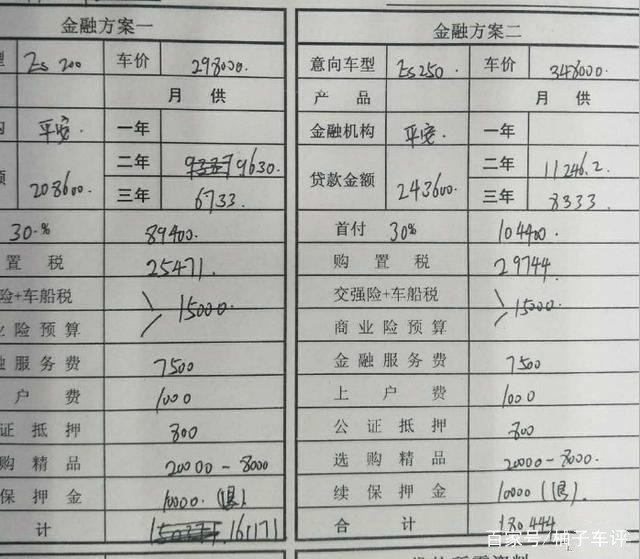 金融方案一
型 Es 200 车价 298000.
月 供
构 平安. 一年
额 208600. 二年 9337 9630.
三年 6733.
30.% 89400.
置 税 25471.
险+车船税 15000.
业险预算
融服务费 7500
户 费 1000
证抵押 800
购精品 20000-8000
保押金 10000.(退).
计 161171
金融方案二
意向车型 Es250. 车价 348000.
产 品 月 供
金融机构 平安. 一年
贷款金额 243600. 二年 11246.2
三年 8333.
首付 30% 104400.
购 置 税 29744.
交强险+车船税 15000.
商业险预算
金融服务费 7500
上 户 费 1000
公证抵押 800
选购精品 20000-8000.
续保押金 10000 (退).
合 计 180444
百家号/柚子车评